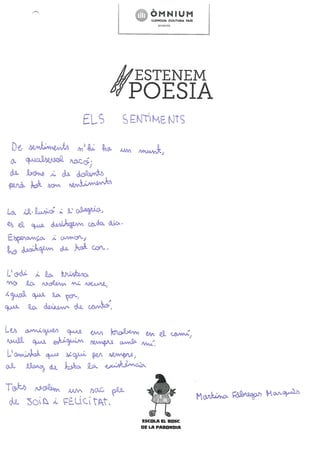 ÒMNIUM
LLENGUA CULTURA PAÍS
ESTENEM
POESIA
ELS SENTIMENTS
De sentiments n'hi ha un munt,
a qualsevol racó;
de bons i de dolents
però tot son sentiments
La il·lusió i l'alegria,
és el que desitgem cada dia.
Esperança i amor,
ho desitgem de tot cor.
L'odi i la tristesa
no la volem ni veure,
igual que la por,
que la deixem de cantó.
Les amigues que ens trobem en el camí,
vull que estiguin sempre amb mi.
L'amistat que sigui per sempre,
al llarg de tota la existència
Tots volem un sac ple
de JOIA i FELICITAT.
Martina Fàbregas Marquès
ESCOLA EL BOSC
DE LA PABORDIA